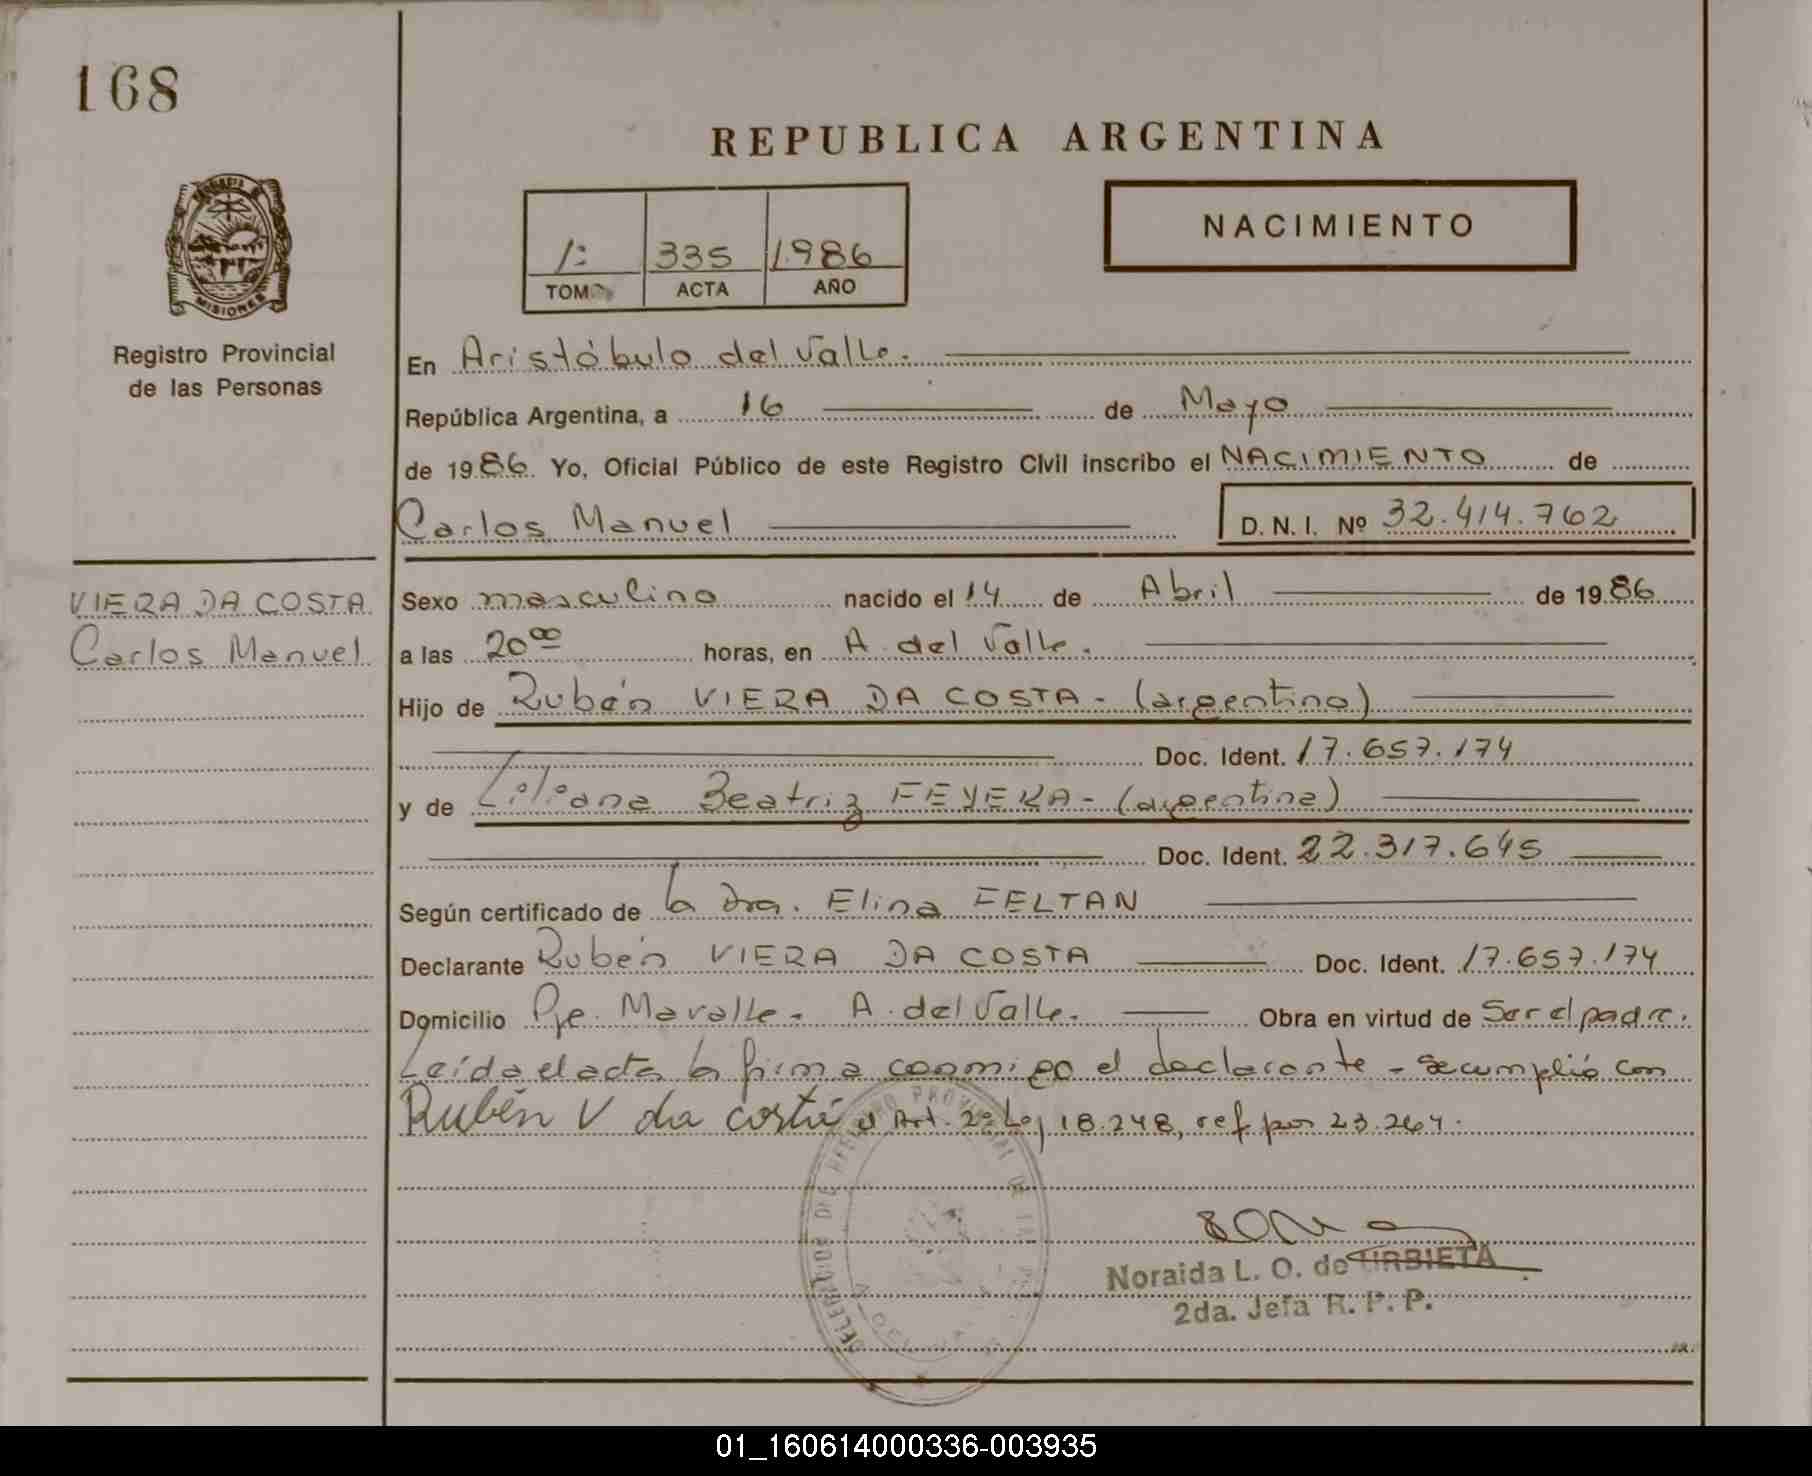 168
REPUBLICA ARGENTINA
NACIMIENTO
1: 335 1.986
TOMO ACTA AÑO
MISIONES
Registro Provincial
de las Personas
En Aristóbulo del Valle.
República Argentina, a 16 de Mayo
de 1986. Yo, Oficial Público de este Registro Civil inscribo el NACIMIENTO de
Carlos Manuel D. N. I. Nº 32.414.762
VIERA DA COSTA
Carlos Manuel
Sexo masculino nacido el 14 de Abril de 1986
a las 20 00 horas, en A. del Valle.
Hijo de Rubén VIERA DA COSTA - (argentino)
Doc. Ident. 17.657.174
y de Liliana Beatriz FEYERA - (argentina)
Doc. Ident. 22.317.645
Según certificado de la Dra. Elina FELTAN
Declarante Rubén VIERA DA COSTA Doc. Ident. 17.657.174
Domicilio Pje. Mavalle. A. del Valle. Obra en virtud de Ser el padre.
Leída el acta la firma conmigo el declarante - Se cumplió con
Rubén V da costa el Art. 2º Ley 18.248, ref por 23.264.
Noraida L. O. de URBIETA
2da. Jefa R. P. P.
01_160614000336-003935